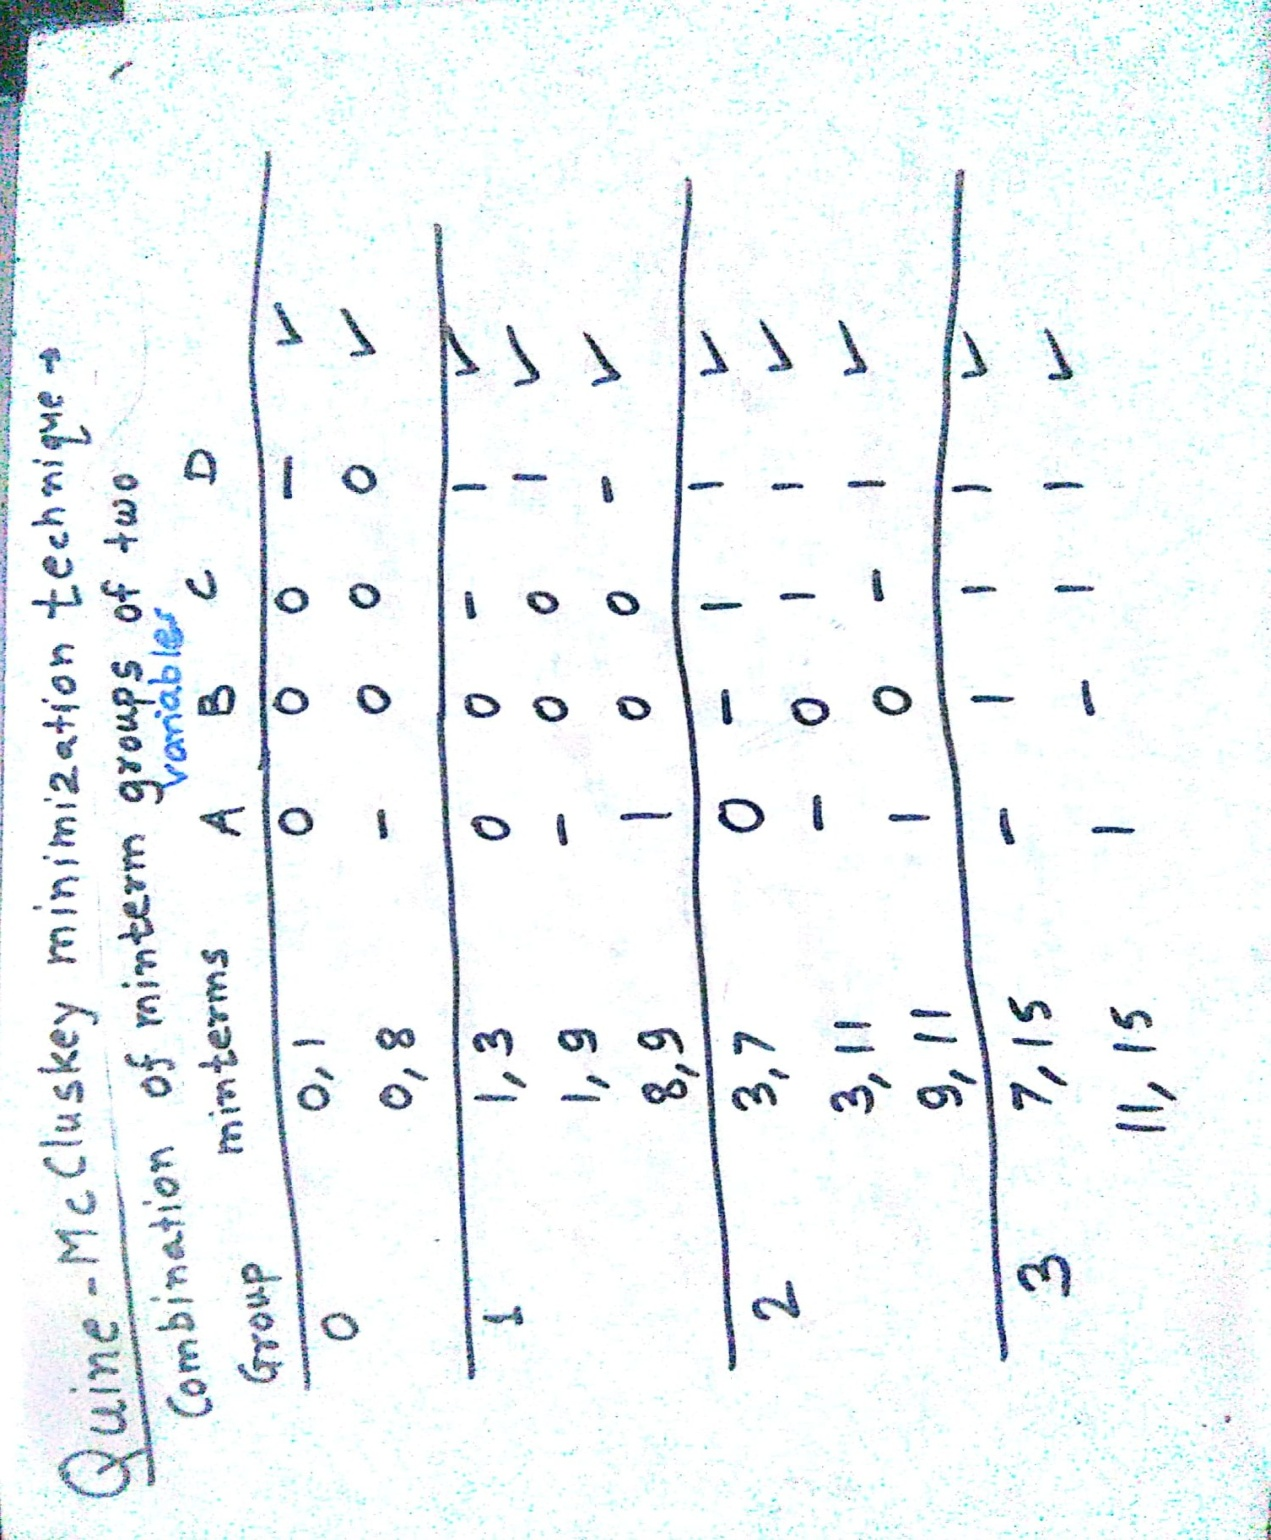 Quine-McCluskey minimization technique →
Combination of minterm groups of two
variables
Group minterms A B C D
0 0,1 0 0 0 – ✓
0,8 – 0 0 0 ✓
1 1,3 0 0 – 1 ✓
1,9 – 0 0 1 ✓
8,9 1 0 0 – ✓
2 3,7 0 – 1 1 ✓
3,11 – 0 1 1 ✓
9,11 1 0 – 1 ✓
3 7,15 – 1 1 1 ✓
11,15 1 – 1 1 ✓